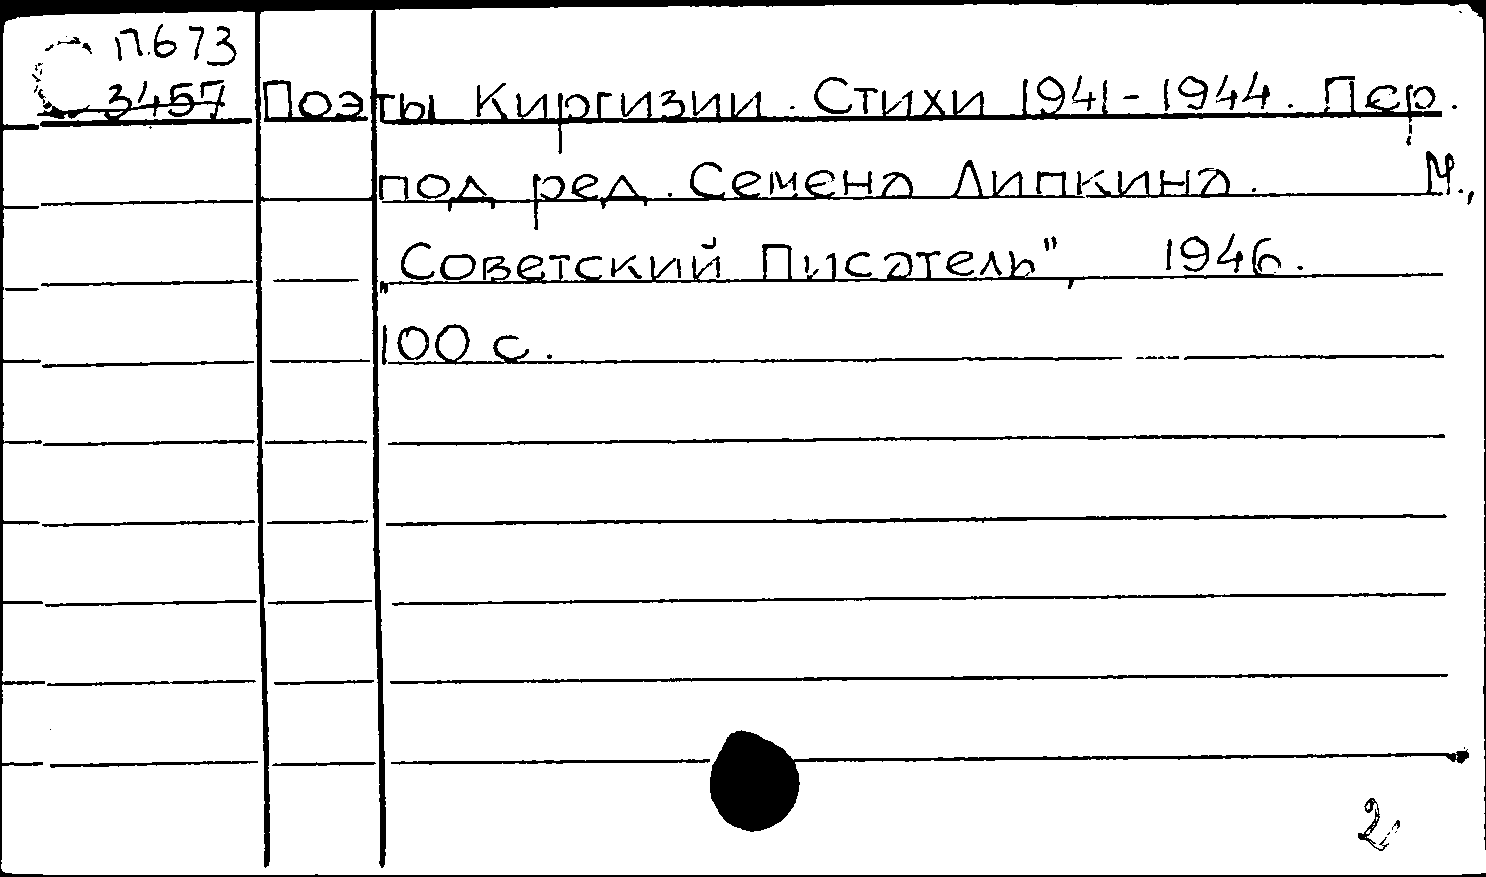 П.673
3457 Поэты Киргизии. Стихи 1941-1944. Пер.
под ред. Семена Липкина. М.,
„Советский Писатель", 1946.
100 с.
2